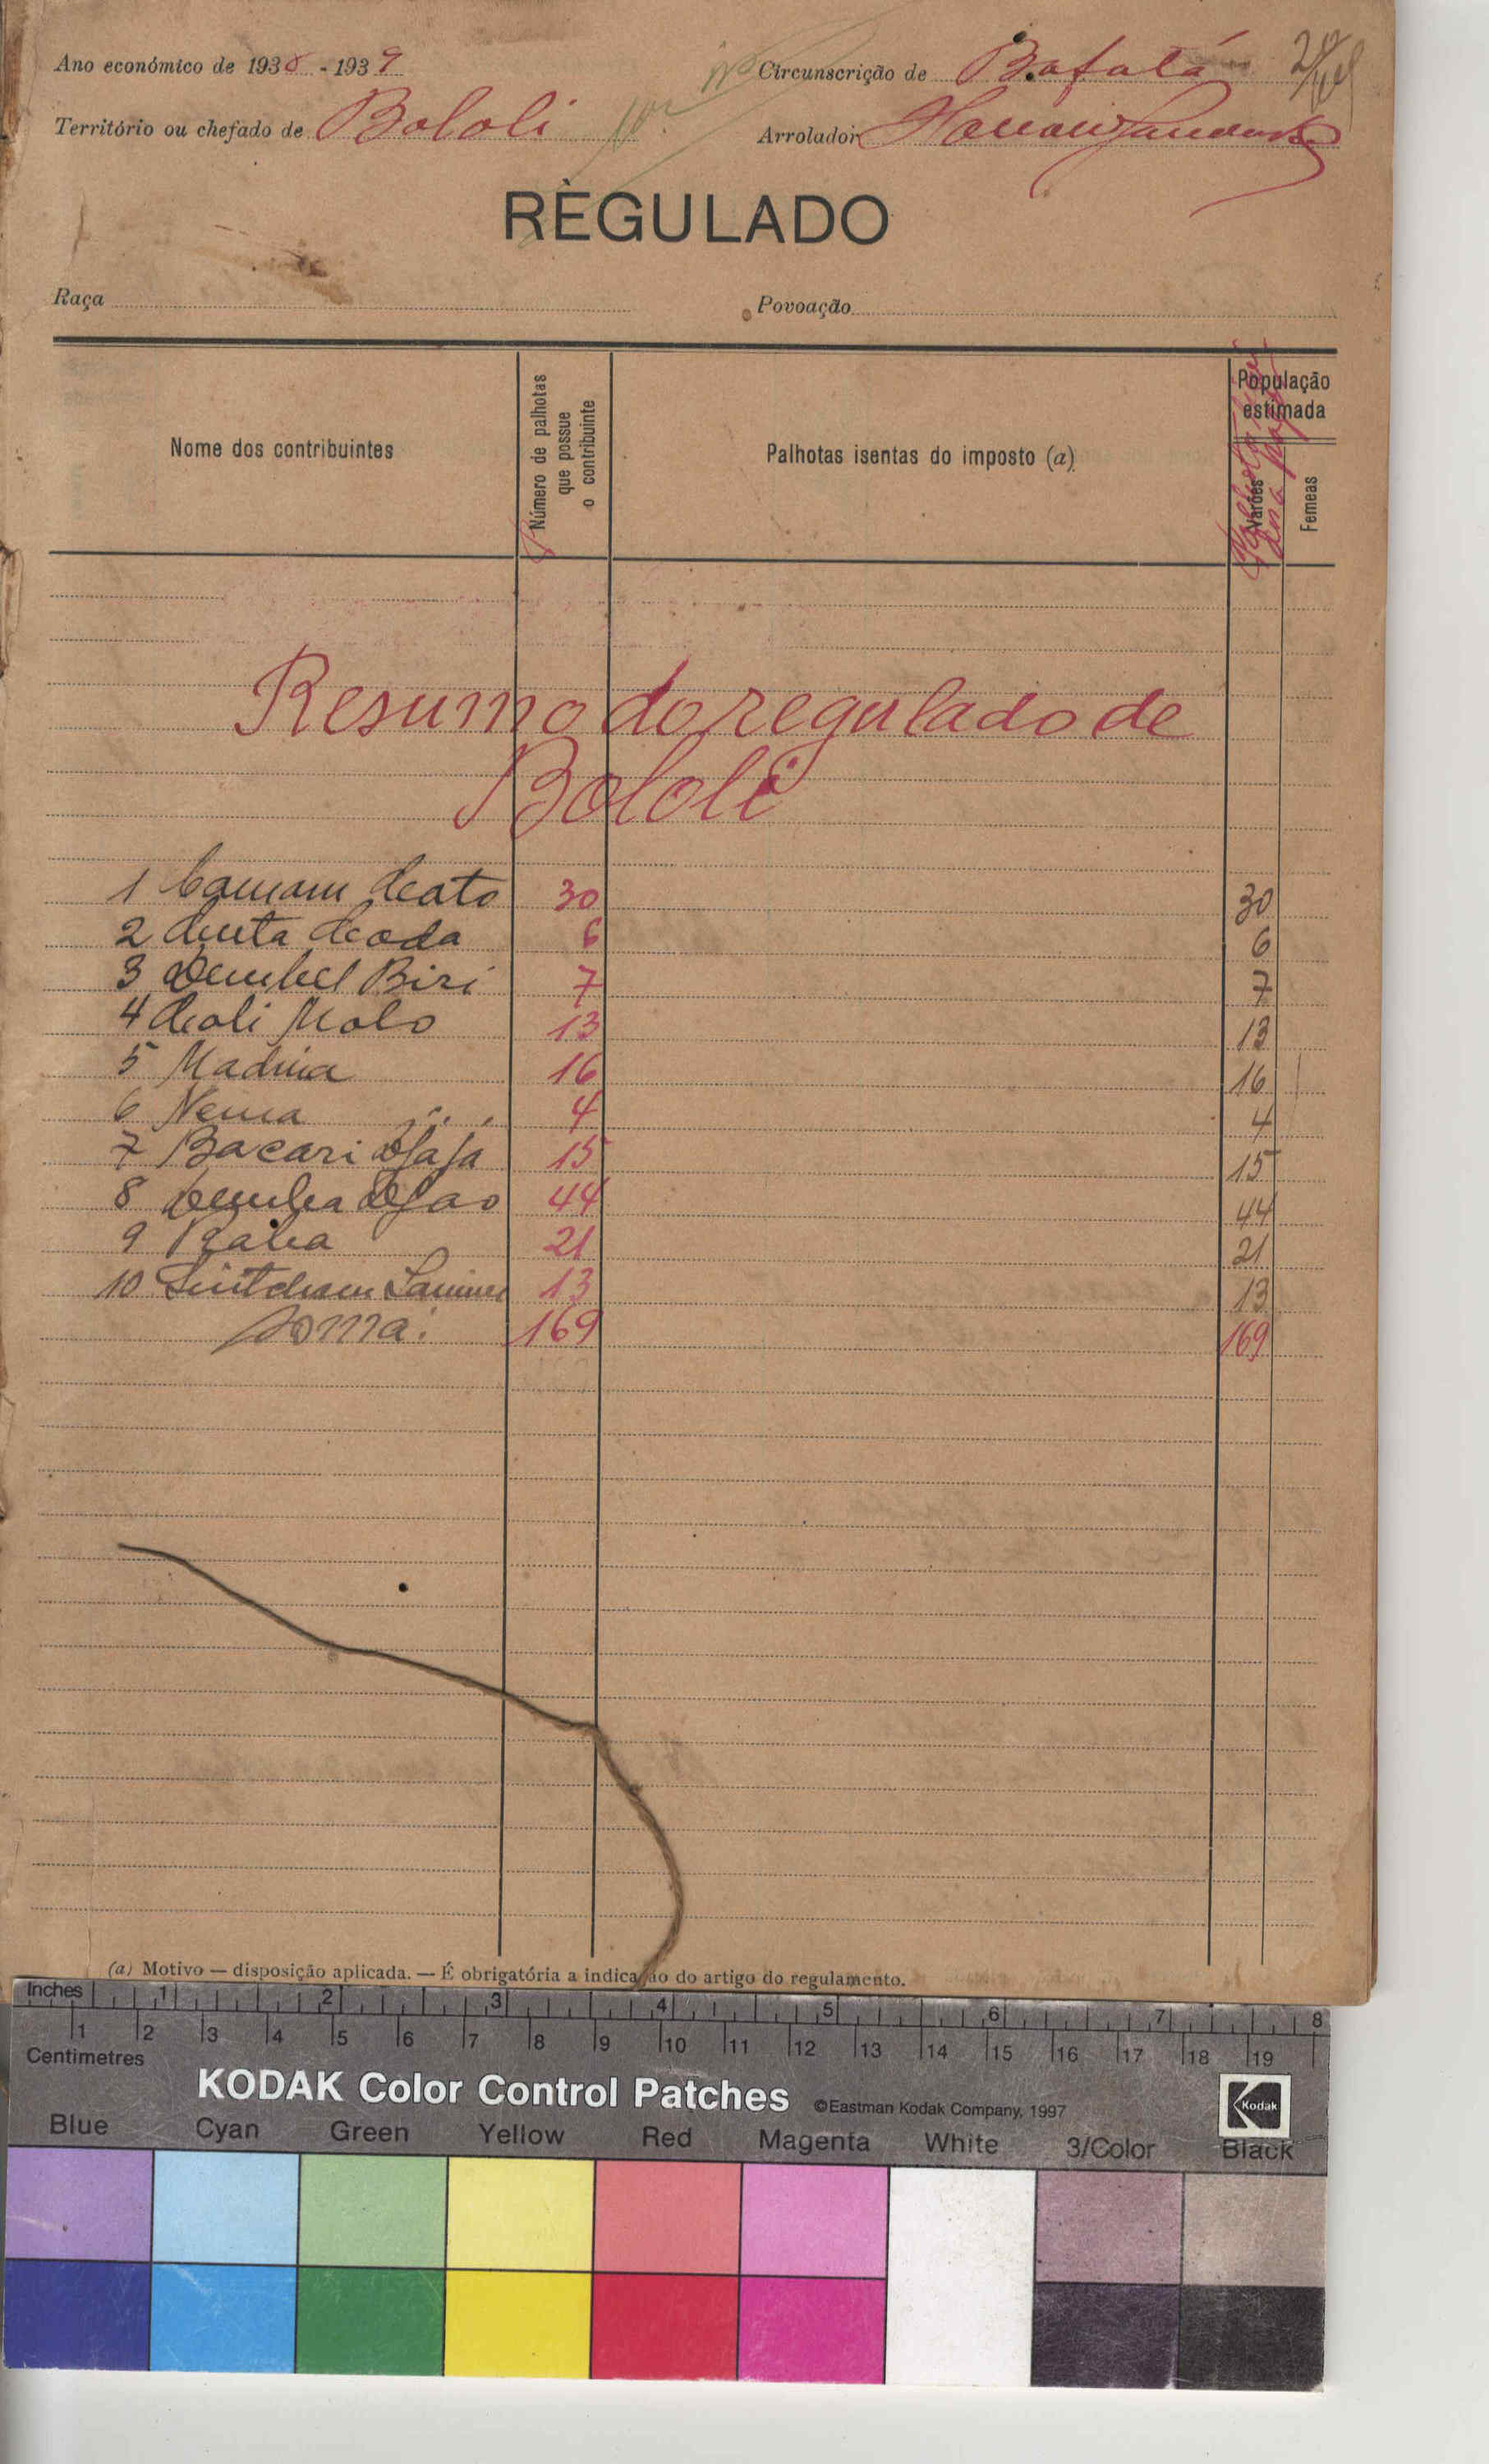 Ano económico de 1938-1939
Circunscrição de Bafatá
Território ou chefado de Bololi
Arrolador
REGULADO
Raça
Povoação
Nome dos contribuintes
Número de palhotas que possue o contribuinte
Palhotas isentas do imposto (a)
População estimada
Varões
Femeas
Resumo do regulado de
Bololi
1 30 30
2 6 6
3 Biri 7 7
4 13 13
5 Madina 16 16
6 Nema 4 4
7 Bacari Djaja 15 15
8 Demba Djao 44 44
9 21 21
10 13 13
Soma: 169 169
(a) Motivo — disposição aplicada. — É obrigatória a indicação do artigo do regulamento.
Inches 1 2 3 4 5 6 7 8
1 2 3 4 5 6 7 8 9 10 11 12 13 14 15 16 17 18 19
Centimetres
KODAK Color Control Patches ©Eastman Kodak Company, 1997 Kodak
Blue Cyan Green Yellow Red Magenta White 3/Color Black